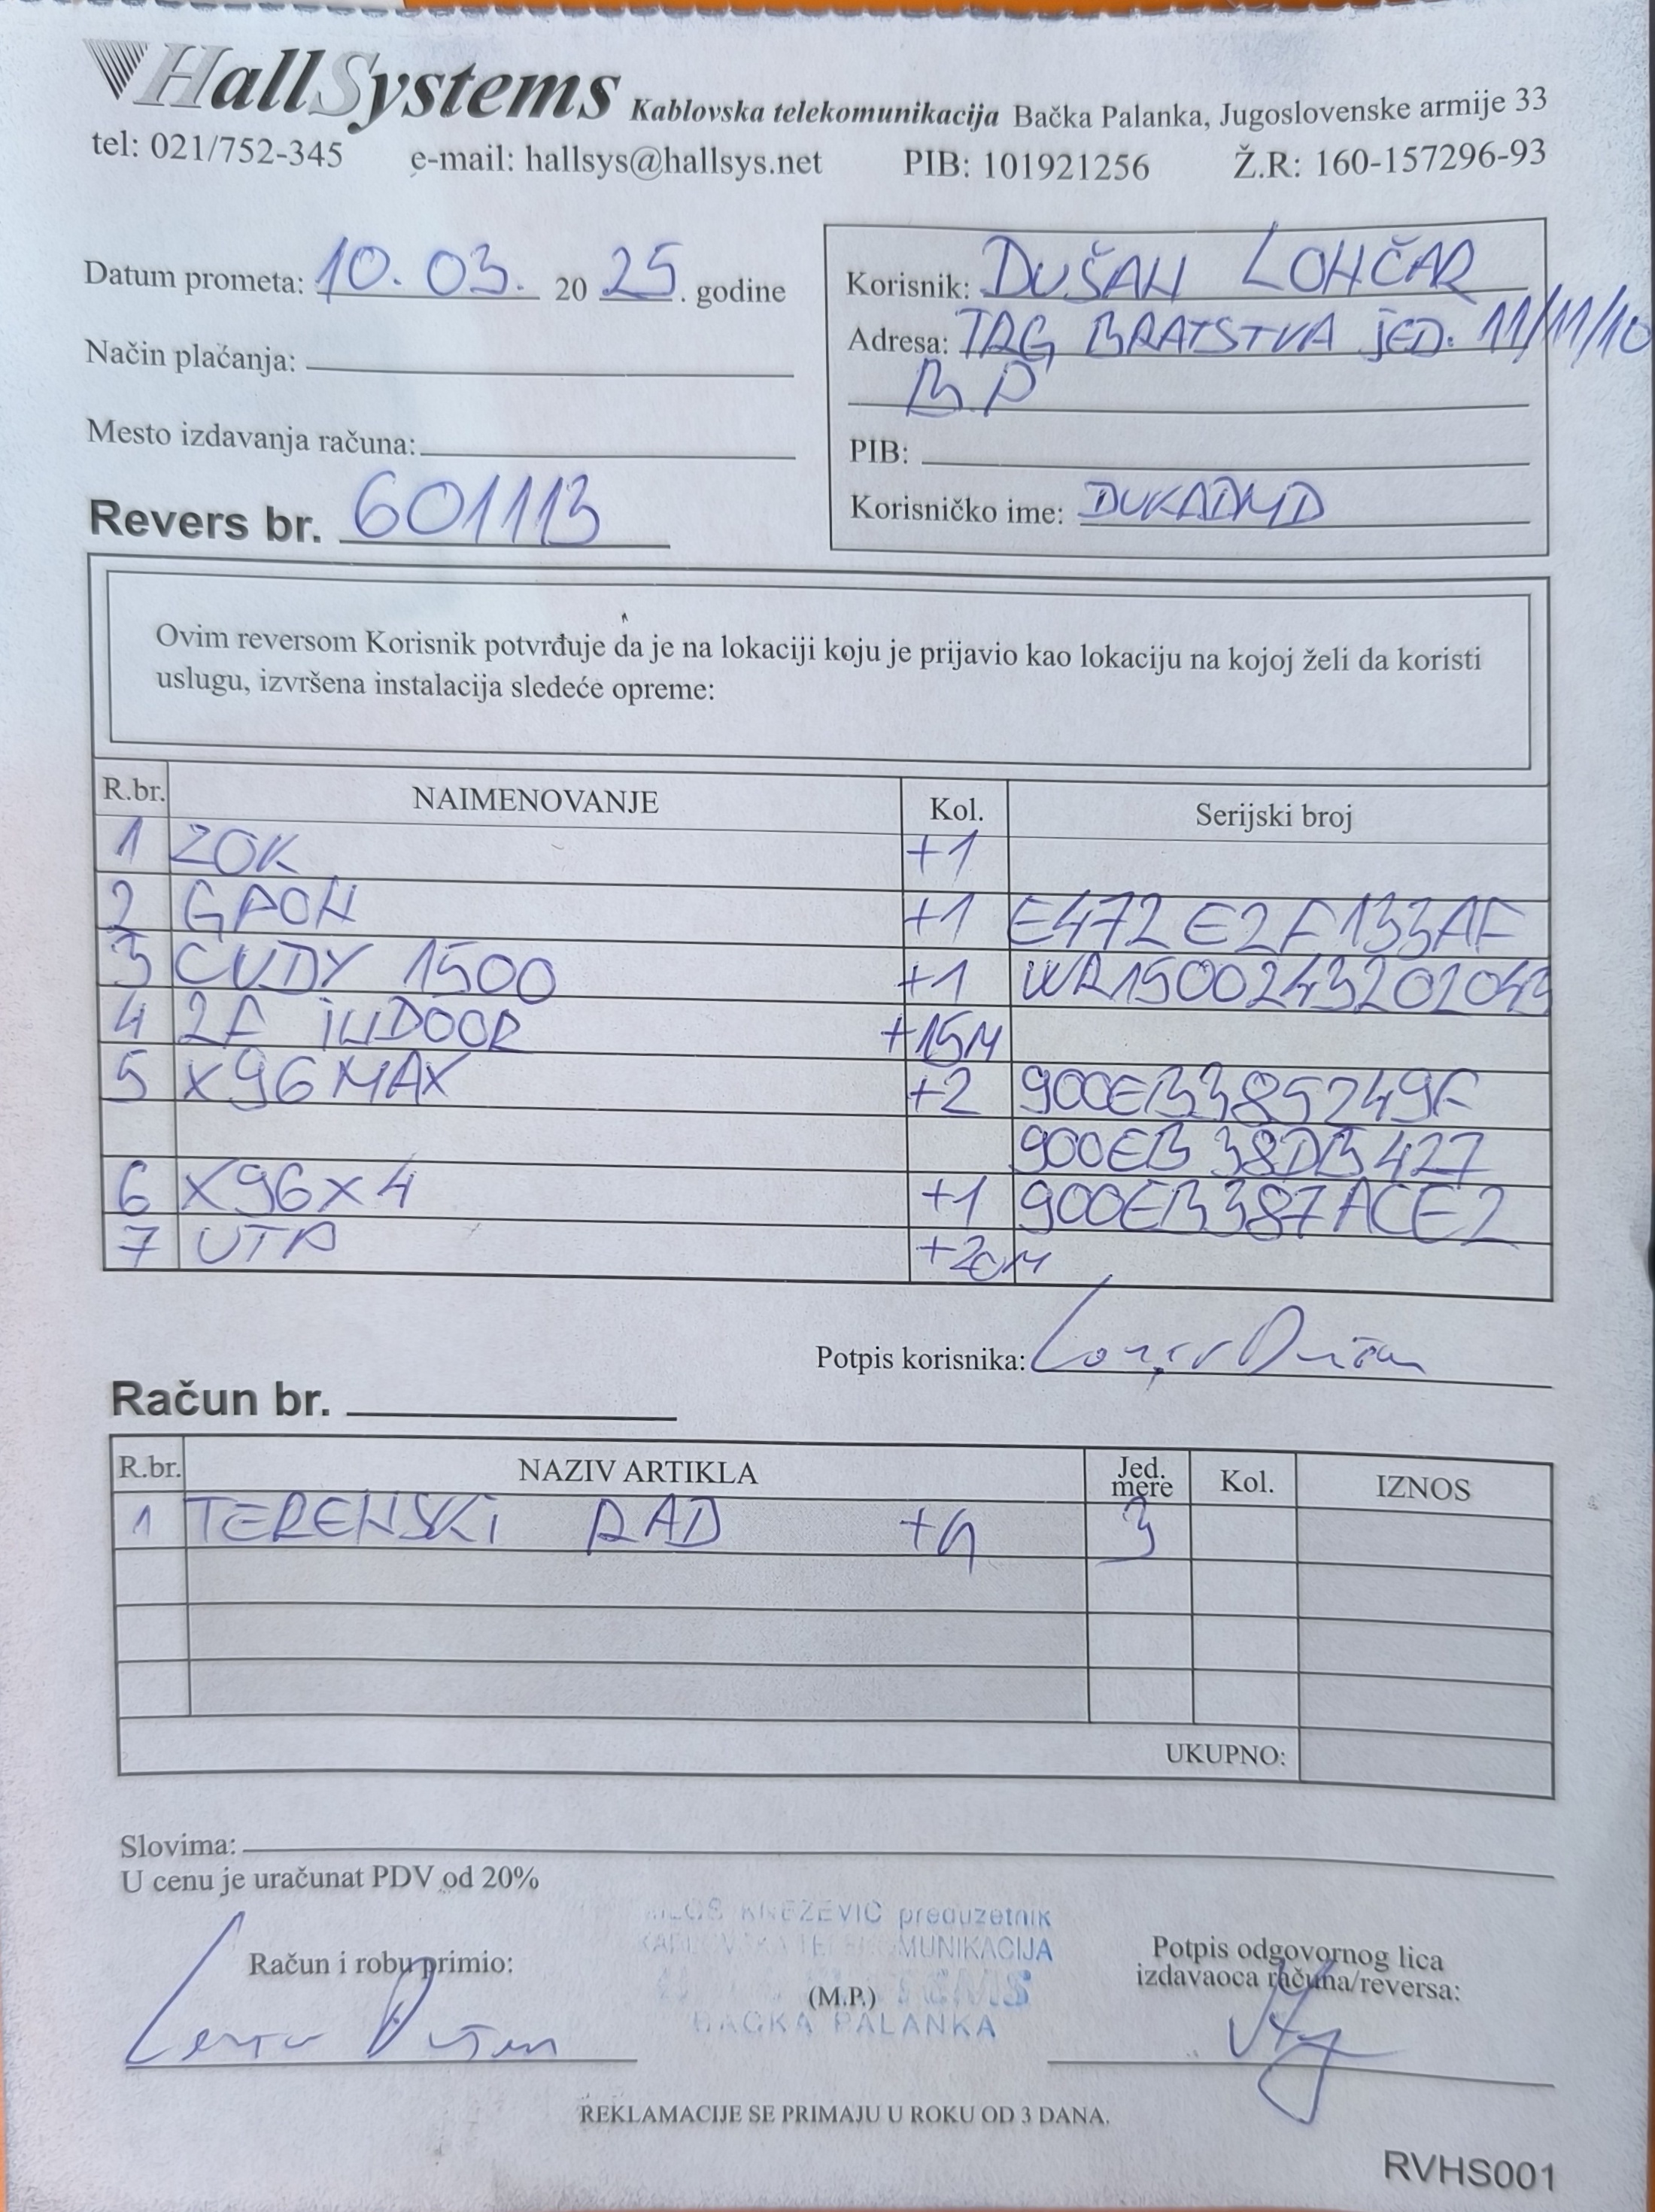 HallSystems Kablovska telekomunikacija Bačka Palanka, Jugoslovenske armije 33
tel: 021/752-345 e-mail: hallsys@hallsys.net PIB: 101921256 Ž.R: 160-157296-93
Datum prometa: 10. 03. 20 25. godine
Način plaćanja:
Mesto izdavanja računa:
Revers br. 601113
Korisnik: DUŠAN LONČAR
Adresa: TRG BRATSTVA JED. 11/11/10
B.P
PIB:
Korisničko ime: DUKADMD
Ovim reversom Korisnik potvrđuje da je na lokaciji koju je prijavio kao lokaciju na kojoj želi da koristi
uslugu, izvršena instalacija sledeće opreme:
R.br. NAIMENOVANJE Kol. Serijski broj
1 ZOK +1
2 GPON +1 E472E2F133AF
3 CUDY 1500 +1 WR1500243202043
4 2F INDOOR +15M
5 X96MAX +2 900EB385249F
900EB38DB427
6 X96X4 +1 900EB387ACE2
7 UTP +20M
Potpis korisnika: Lončar Dušan
Račun br.
R.br. NAZIV ARTIKLA Jed. mere Kol. IZNOS
1 TERENSKI RAD 3
UKUPNO:
Slovima:
U cenu je uračunat PDV od 20%
MILOŠ KNEŽEVIĆ preduzetnik
KABLOVSKA TELEKOMUNIKACIJA
Račun i robu primio: (M.P.) Potpis odgovornog lica
izdavaoca računa/reversa:
BAČKA PALANKA
Lončar Dušan
REKLAMACIJE SE PRIMAJU U ROKU OD 3 DANA.
RVHS001